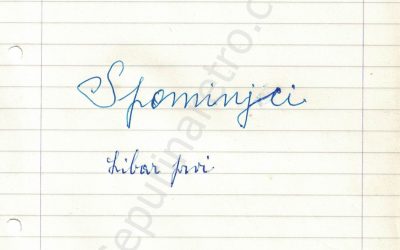 Spominjci
Libar prvi
sepurinaretro.c